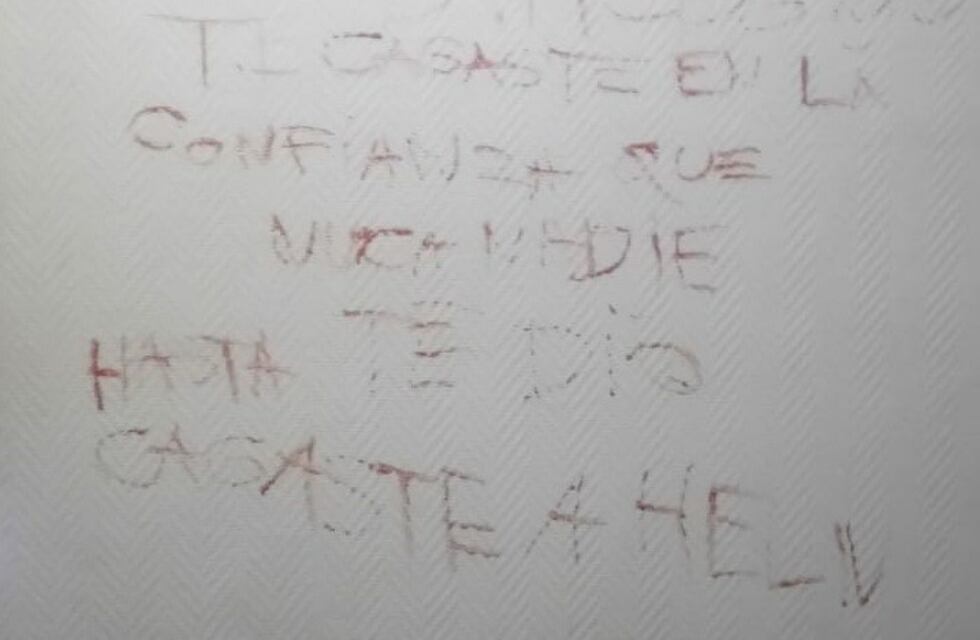 TE CAGASTE EN LA
CONFIANZA QUE
NUCA NADIE
TE DIO
HASTA
CAGASTE A HEL